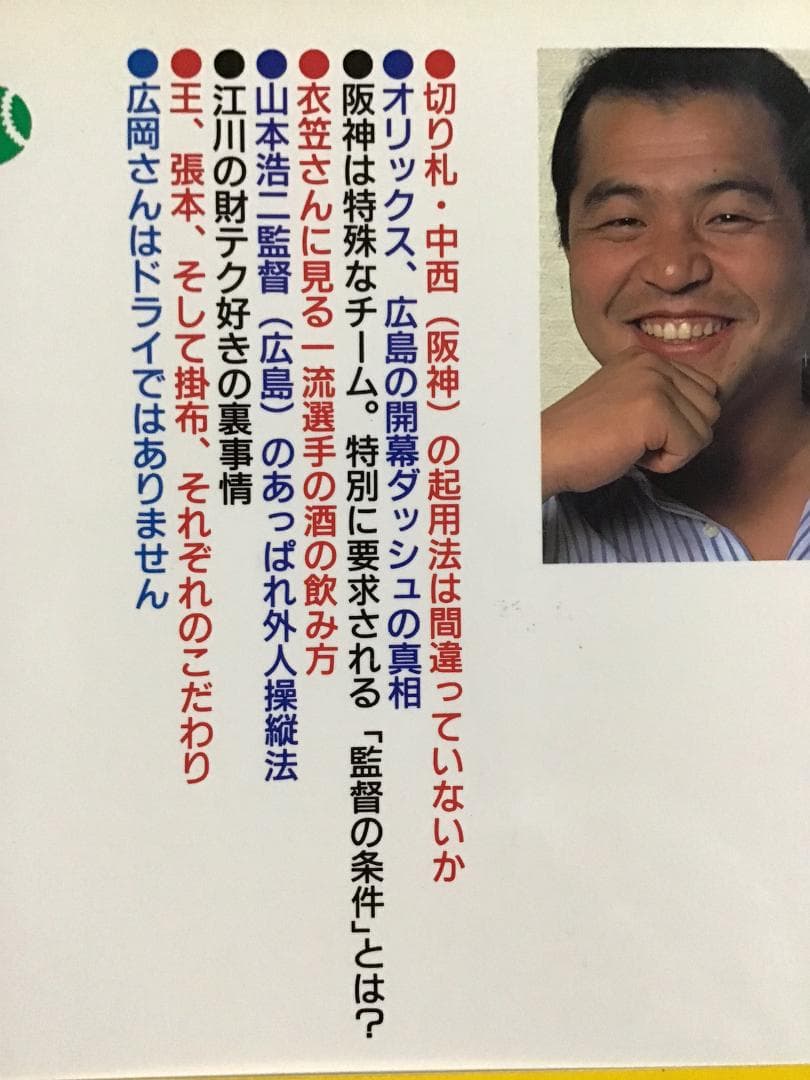 ●切り札・中西（阪神）の起用法は間違っていないか
●オリックス、広島の開幕ダッシュの真相
●阪神は特殊なチーム。特別に要求される「監督の条件」とは？
●衣笠さんに見る一流選手の酒の飲み方
●山本浩二監督（広島）のあっぱれ外人操縦法
●江川の財テク好きの裏事情
●王、張本、そして掛布、それぞれのこだわり
●広岡さんはドライではありません